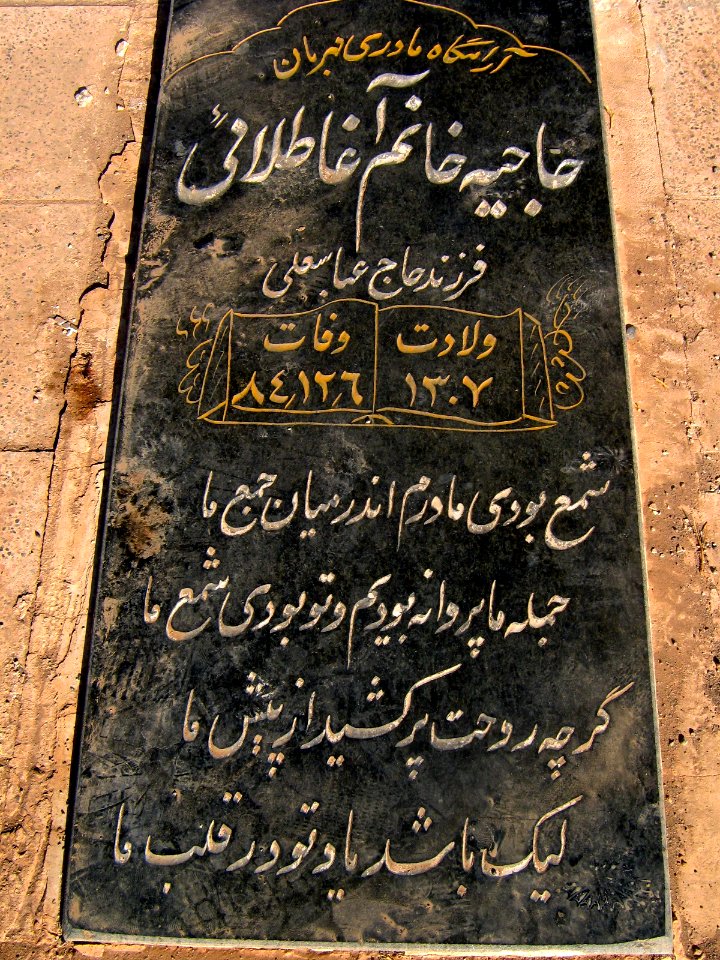 آرامگاه مادری مهربان
حاجیه خانم آغا طلائی
فرزند حاج عباسعلی
ولادت وفات
۱۳۰۷ ۸۴,۱۲,۶
شمع بودی مادرم اندر میان جمع ما
جمله ما پروانه بودیم و تو بودی شمع ما
گرچه روحت پر کشید از پیش ما
لیک باشد یاد تو در قلب ما